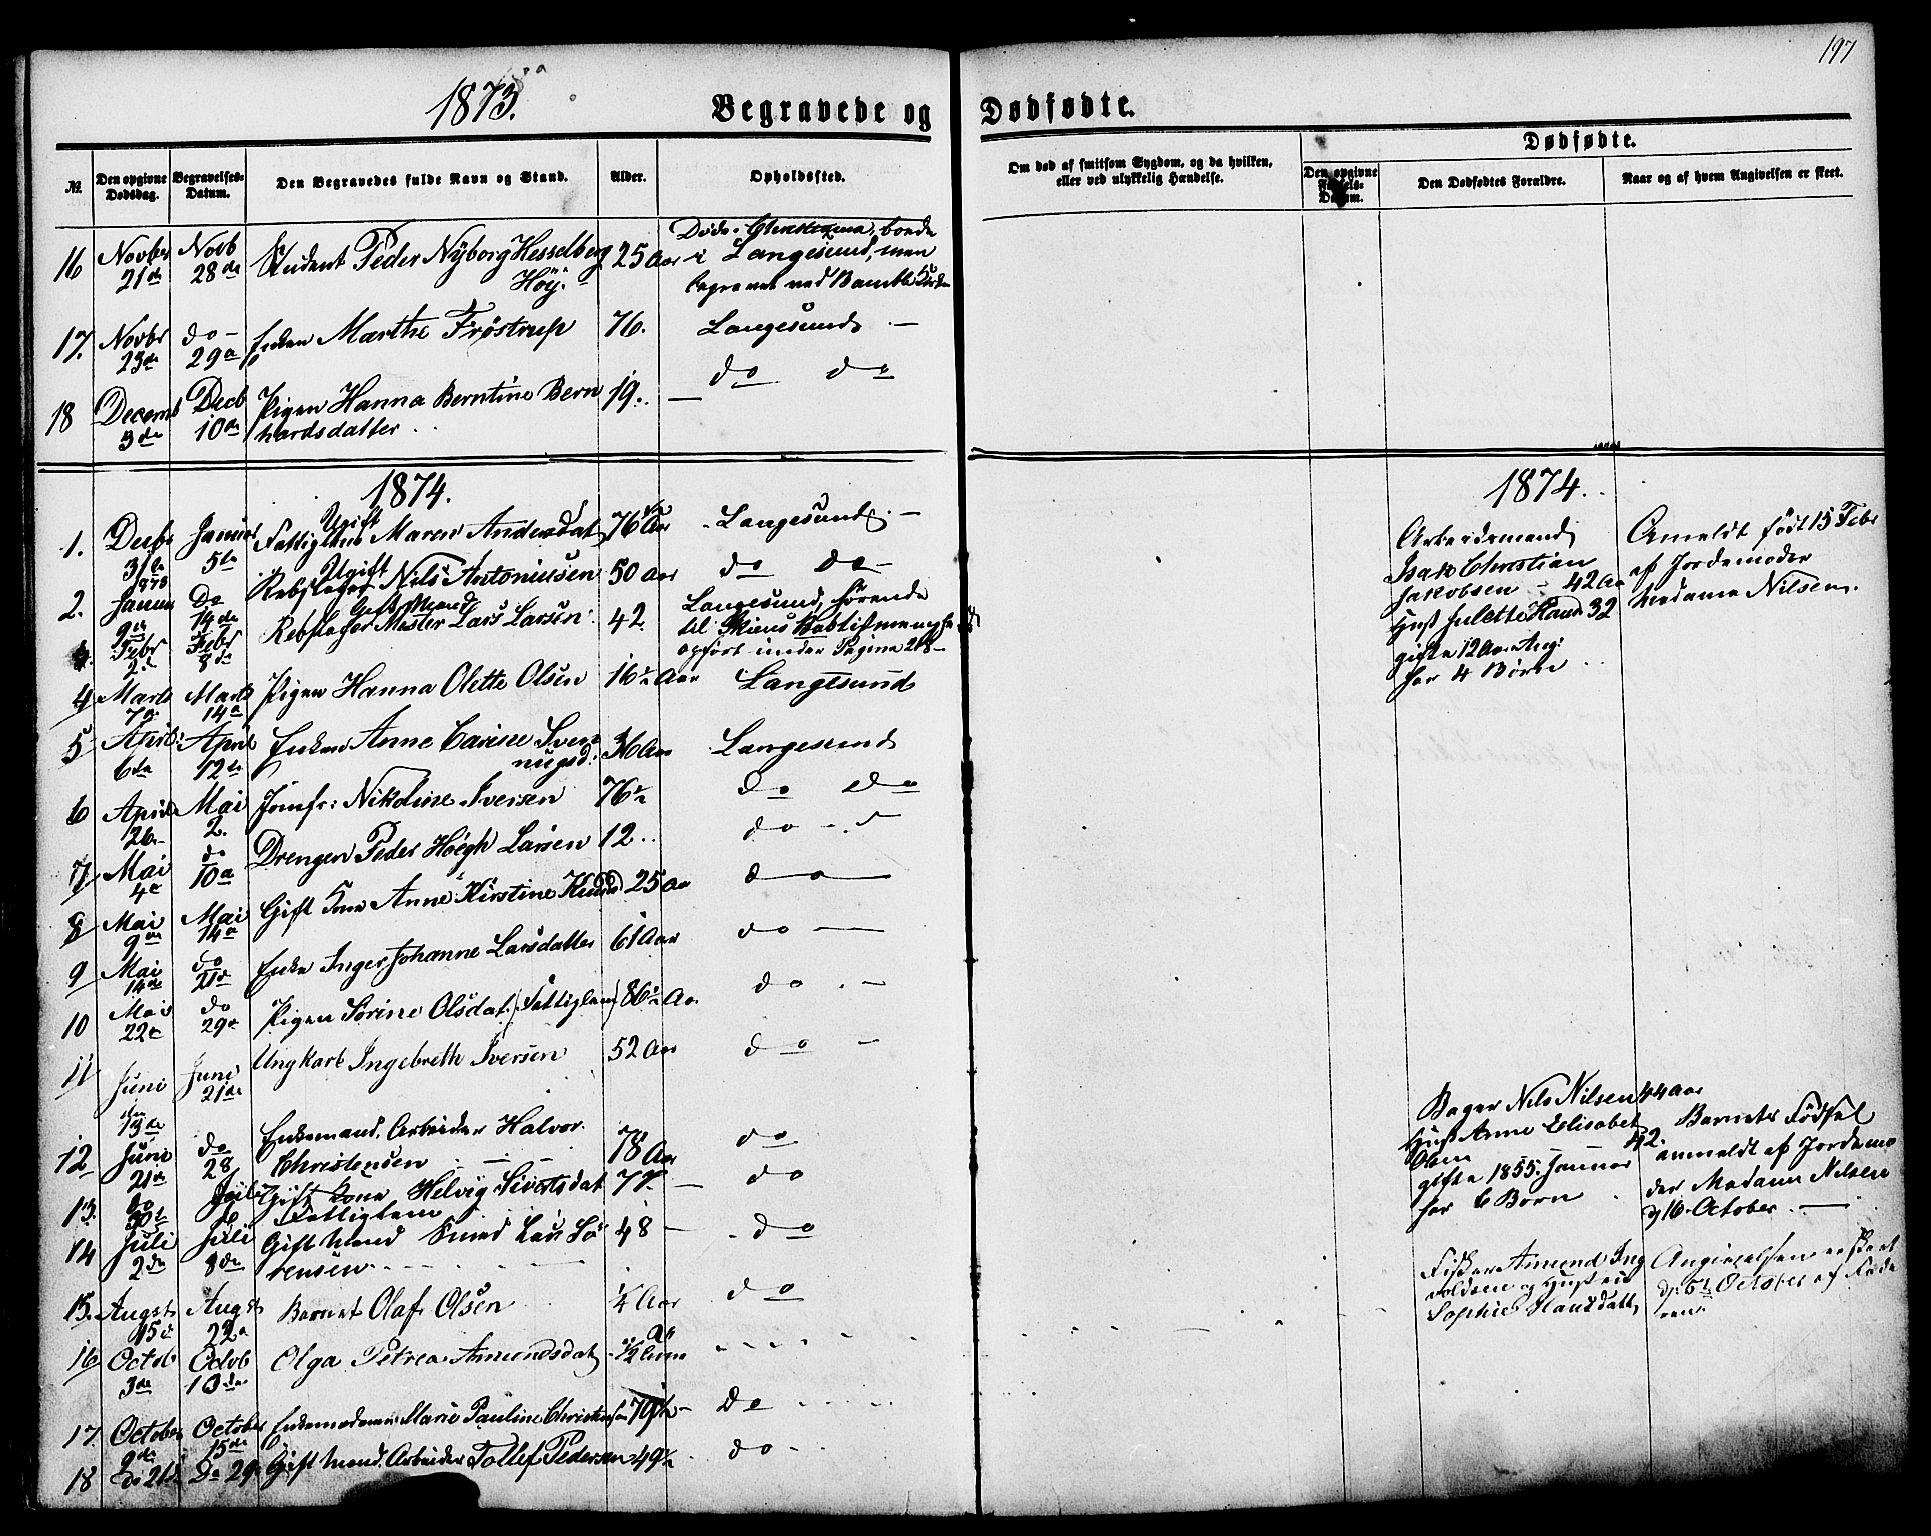 197
1873.
Begravede og Dødfødte.
№ Den opgivne Dødsdag. Begravelses-Datum. Den Begravedes fulde Navn og Stand. Alder. Opholdssted.
Om død af smitsom Sygdom, og da hvilken, eller ved ulykkelig Hændelse.
Dødfødte.
Den opgivne Datum. Den Dødfødtes Forældre. Naar og af hvem Angivelsen er skeet.
16 Novbr 21de Novb 28de Student Peder Nyborg Hesselberg Höy. 25 Aar
Döde i Christiania, boede
i Langesund, men
begravet ved Bamble
17. Novbr 23de do 29de Enken Marthe Fröstrup 76. Langesund
18 Decemb 3de Decb 10de Pigen Hanna Berntine Bern
hardsdatter 19. do do
1874.
1. Decbr 31te 1873 Januar 5te Ugift
Fattiglem Maren Andersdat 76 Aar Langesund
2. Januar 9de Do 14de Ugift
Rebslager Nils Antoniusen 50 Aar do do
Febr 2de Febr 8de Gift Mand
Rebslager Mester Lars Larsen 42
Langesund, hörende
til Skiens Babtistmenighed
opfört under Pagina 218
4 Marts 7de Marts 14de Pigen Hanna Olette Olsen 16½ Aar Langesund
5 April 6de April 12te Enken Anne Carine Sven
nugsd. 36 Aar Langesund
6 April 26. Mai 2. Jomfr: Nikoline Iversen 76½ do do
7 Mai 4de do 10de Drengen Peder Höegh Larsen 12 do
8 Mai 9de Mai 14de Gift Kone Anne Kirstine 25 Aar do
9 Mai 14de do 21de Enke Inger Johanne Larsdatter 61 Aar do
10 Mai 22de do 29de Pigen Sörine Olsdat (Fattiglem) 86½ Aar do
11 Juni den 13de Juni 21de Ungkarl Ingebreth Iversen 52 Aar do
12 Juni 21de do 28 Enkemand. Arbeider Halvor
Christensen 78 Aar do
13. do 30te Juli Gift Kone Helvig Sivertsdat
Fattiglem 77. do
14 Juli 2de Juli 8de Gift Mand Smed Lars Sö
rensen 48 do
15. Augst 15de Augst 22de Barnet Olaf Olsen ¼ Aar do
16 Octob 3de Octob 10de Olga Petrea Amundsdat ½
17. October 9de October 15de Marie Pauline Christensen 70 Do
18 Do 21de Do 29de Gift Mand. Arbeider Tollef Pedersen 49½ do
1874.
Arbeidsmand
Isak Christian
Jakobsen 42 Aar
Hust Julette 32
gifte 12 Aar
har 4 Börn
Anmeldt født 15 Febr
af Jordemoder
Madame Nilsen.
Bager Nils Nilsen 44 Aar
Hust Anne Elisabet
Olsen 42.
gifte 1855. Januar
har 6 Börn
Barnets Födsel
anmeldt af Jordemo
der Madam Nilsen
16 October
Fisker Amund Ing
voldsen og Hustru
Sophie Hansdatt
Angivelsen er skeet
d. 5te October af Fade
ren.